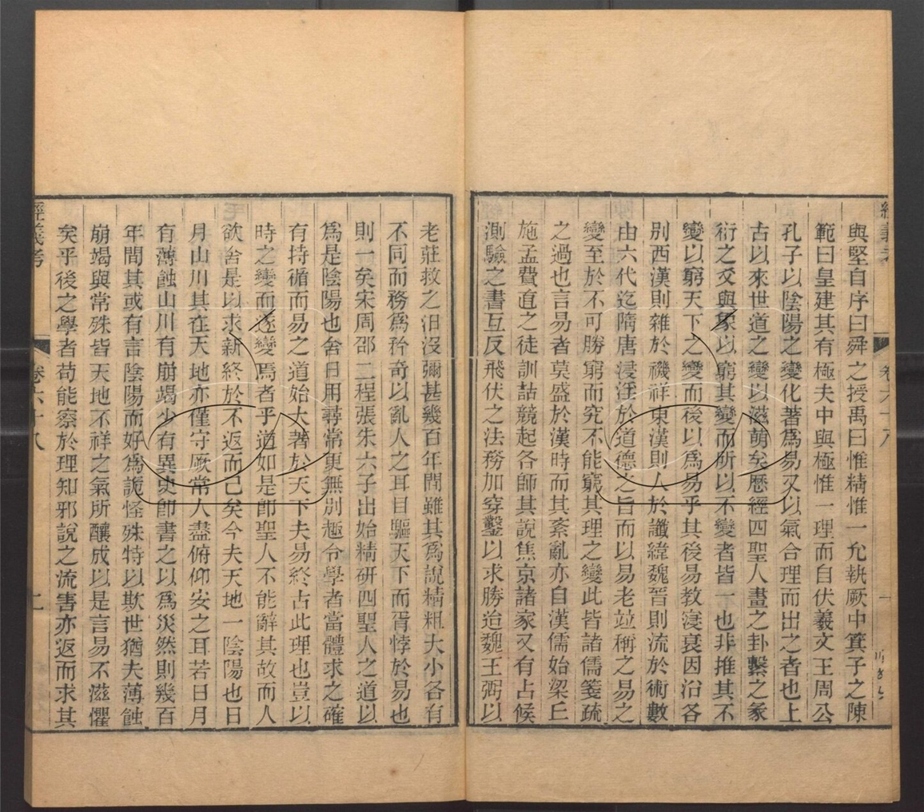 與堅自序曰舜之授禹曰惟精惟一允執厥中箕子之陳
範曰皇建其有極夫中與極惟一理而自伏羲文王周公
孔子以陰陽之變化著爲易又以氣合理而出之者也上
古以來世道之變以滋萌矣歷經四聖人畫之卦繫之彖
衍之爻與象以窮其變而所以不變者皆一也非推其不
變以窮天下之變而後以爲易乎其後易教寖衰因沿各
別西漢則雜於禨祥東漢則入於讖緯魏晉則流於術數
由六代迄隋唐浸淫於道德之旨而以易老竝稱之易之
變至於不可勝窮而究不能窮其理之變此皆諸儒箋疏
之過也言易者莫盛於漢時而其紊亂亦自漢儒始梁丘
施孟費直之徒訓詁競起各師其說焦京諸家又有占候
測驗之書互反飛伏之法務加穿鑿以求勝迨魏王弼以
老莊救之汨沒彌甚幾百年閒雖其爲說精粗大小各有
不同而務爲矜奇以亂人之耳目驅天下而胥悖於易也
則一矣宋周邵二程張朱六子出始精硏四聖人之道以
爲是陰陽也舍日用尋常更無別極令學者當體求之確
有持循而易之道始大著於天下夫易終古此理也豈以
時之變而遂變焉者乎道如是卽聖人不能辭其故而人
欲舍是以求新終於不返而已矣今夫天地一陰陽也日
月山川其在天地亦僅守厥常人盡俯仰安之耳若日月
有薄蝕山川有崩竭少有異史卽書之以爲災然則幾百
年間其或有言陰陽而好爲詭怪殊特以欺世猶夫薄蝕
崩竭與常殊皆天地不祥之氣所釀成以是言易不滋懼
矣乎後之學者苟能察於理知邪說之流害亦返而求其
經義考
卷六十八
一
經義考
卷六十八
二